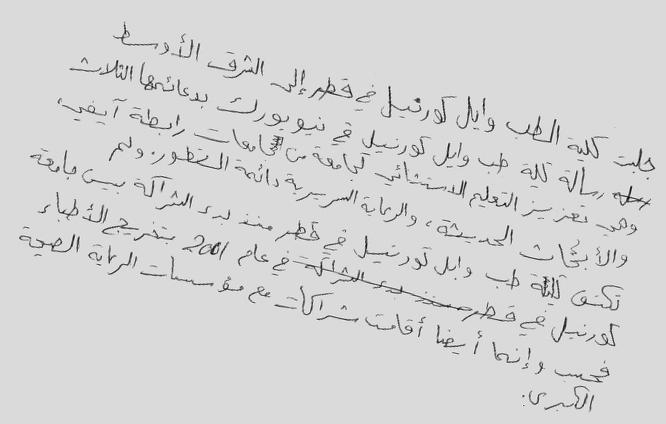 جلبت كلية الطب وايل كورنيل في قطر إلى الشرق الأوسط
رسالة كلية طب وايل كورنيل في نيويورك بدعائمها الثلاث
وهي تعزيز التعليم الاستثنائي كجامعة من جامعات رابطة آيفي،
والأبحاث الحديثة، والرعاية السريرية دائمة التطور. ولم
تكتف كلية طب وايل كورنيل في قطر منذ بدء الشراكة بين جامعة
كورنيل في قطر في عام 2001 بتخريج الأطباء
فحسب وإنما أيضا أقامت شراكات مع مؤسسات الرعاية الصحية
الكبرى.